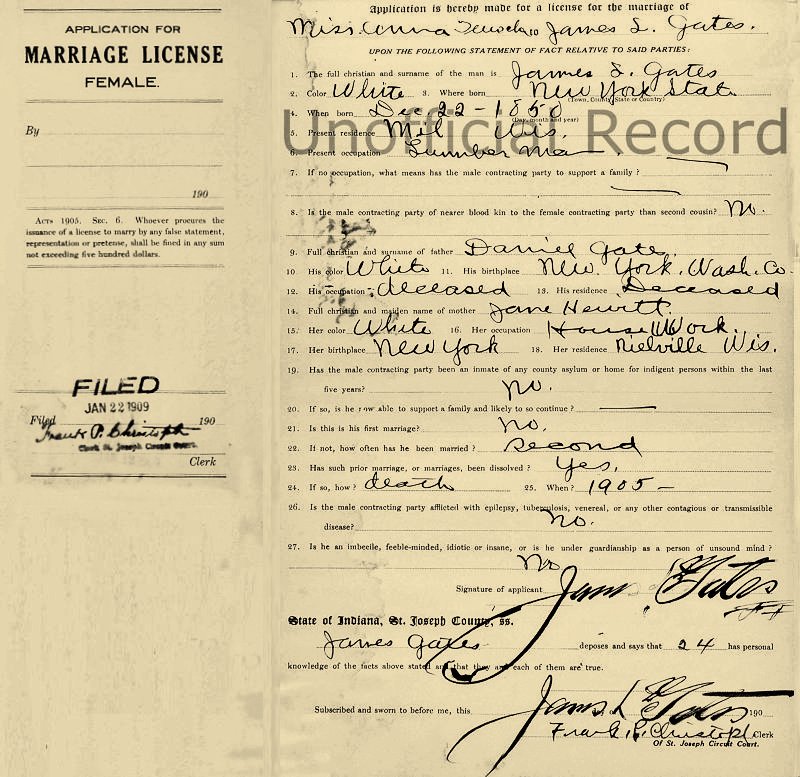 APPLICATION FOR
MARRIAGE LICENSE
FEMALE.
By
190
Acts 1905. Sec. 6. Whoever procures the
issuance of a license to marry by any false statement,
representation or pretense, shall be fined in any sum
not exceeding five hundred dollars.
FILED
JAN 22 1909
Filed 190
Frank P. Christoph
Clerk St. Joseph Circuit Court.
Clerk
Application is hereby made for a license for the marriage of
Miss. Anna to James L. Gates.
UPON THE FOLLOWING STATEMENT OF FACT RELATIVE TO SAID PARTIES:
1. The full christian and surname of the man is James L. Gates
2. Color White 3. Where born New York State
(Town, County, State or Country)
4. When born Dec. 22 - 1850
(Day, month and year)
Unofficial Record
5. Present residence Mil Wis.
6. Present occupation Lumber Man.
7. If no occupation, what means has the male contracting party to support a family?
8. Is the male contracting party of nearer blood kin to the female contracting party than second cousin? No.
9. Full christian and surname of father Daniel Gates.
10. His color White 11. His birthplace New. York. Wash. Co.
12. His occupation deceased 13. His residence Deceased
14. Full christian and maiden name of mother Jane Hewitt.
15. Her color White 16. Her occupation House Work.
17. Her birthplace New York 18. Her residence Nielville Wis.
19. Has the male contracting party been an inmate of any county asylum or home for indigent persons within the last
five years? No.
20. If so, is he now able to support a family and likely to so continue?
21. Is this his first marriage? No.
22. If not, how often has he been married? Second
23. Has such prior marriage, or marriages, been dissolved? Yes,
24. If so, how? death 25. When? 1905 -
26. Is the male contracting party afflicted with epilepsy, tuberculosis, venereal, or any other contagious or transmissible
disease? No.
27. Is he an imbecile, feeble-minded, idiotic or insane, or is he under guardianship as a person of unsound mind?
No
Signature of applicant Jam Gates
State of Indiana, St. Joseph County, ss.
James Gates deposes and says that 24 has personal
knowledge of the facts above stated and that they and each of them are true.
James L Gates
Subscribed and sworn to before me, this 190
Frank P. Christoph Clerk
Of St. Joseph Circuit Court.